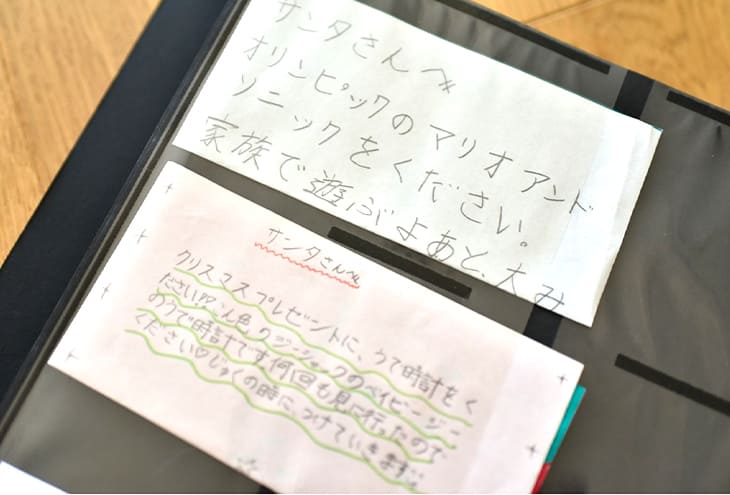 サンタさんへ
オリンピックのマリオアンド
ソニックをください。
家族で遊ぶよあと、大み
サンタさんへ
クリスマスプレゼントに、うで時計をく
ださい!?こん色のジーショックのベイビージー
おうで時計です。何回も見に行ったので
ください♡じゅくの時に、つけていきます